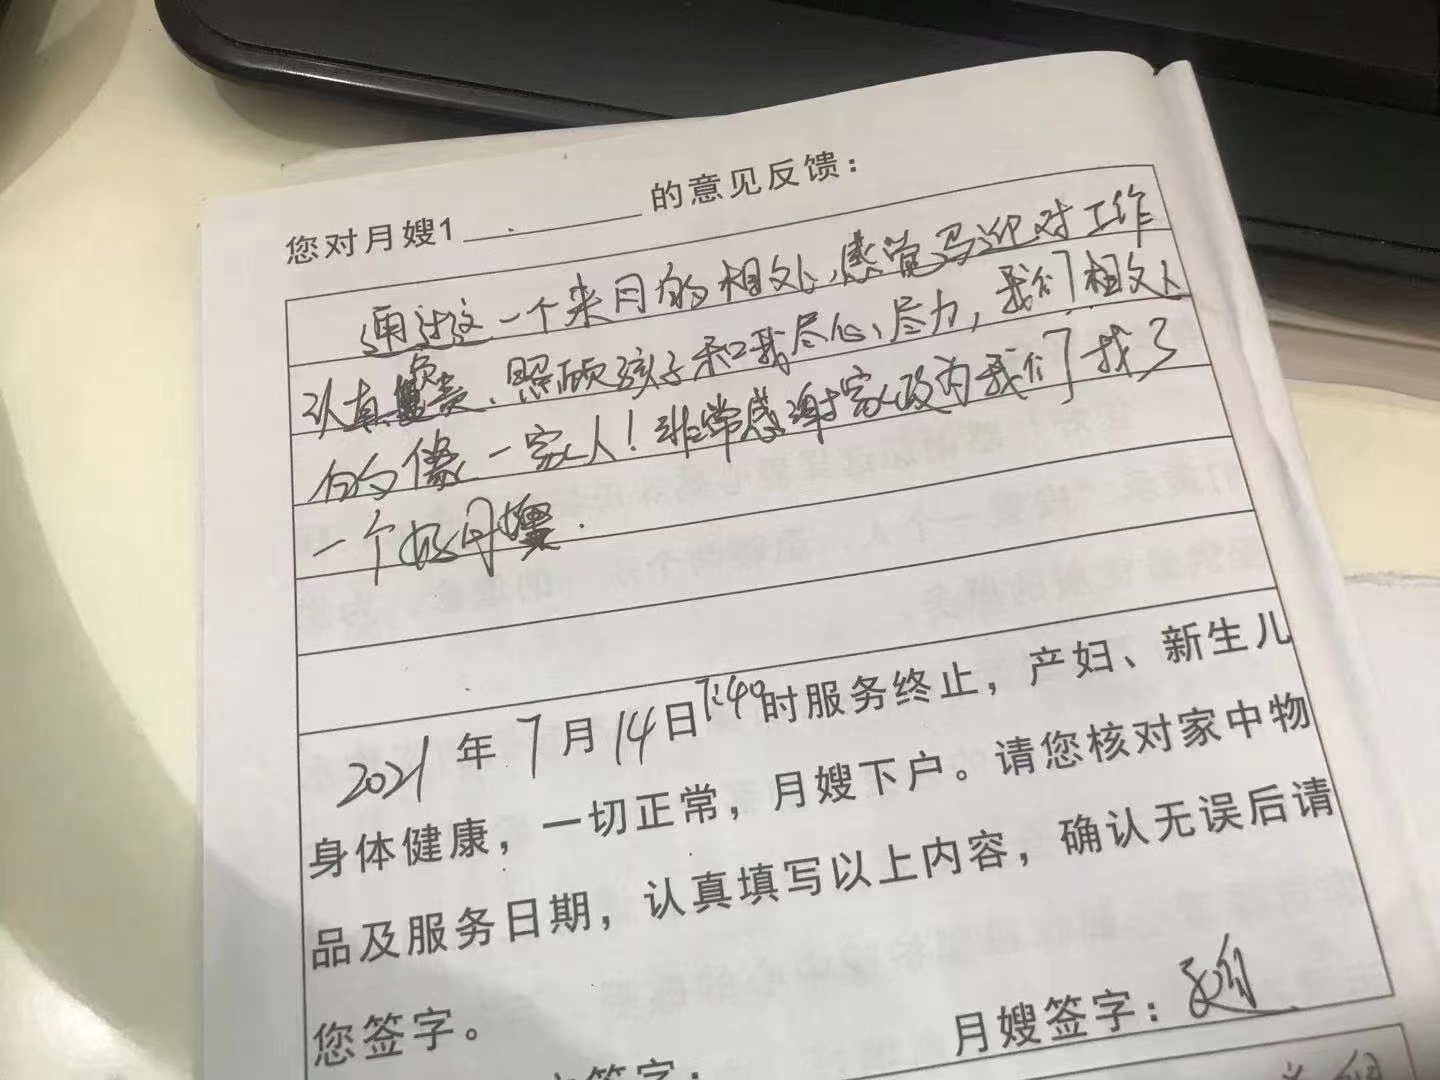 您对月嫂1 的意见反馈：
通过这一个来月的相处，感觉马迎对工作
认真负责、照顾孩子和我尽心、尽力，我们相处
的像一家人！非常感谢家政为我们找了
一个好月嫂.
2021年7月14日7:40时服务终止，产妇、新生儿
身体健康，一切正常，月嫂下户。请您核对家中物
品及服务日期，认真填写以上内容，确认无误后请
您签字。
月嫂签字：
签字：